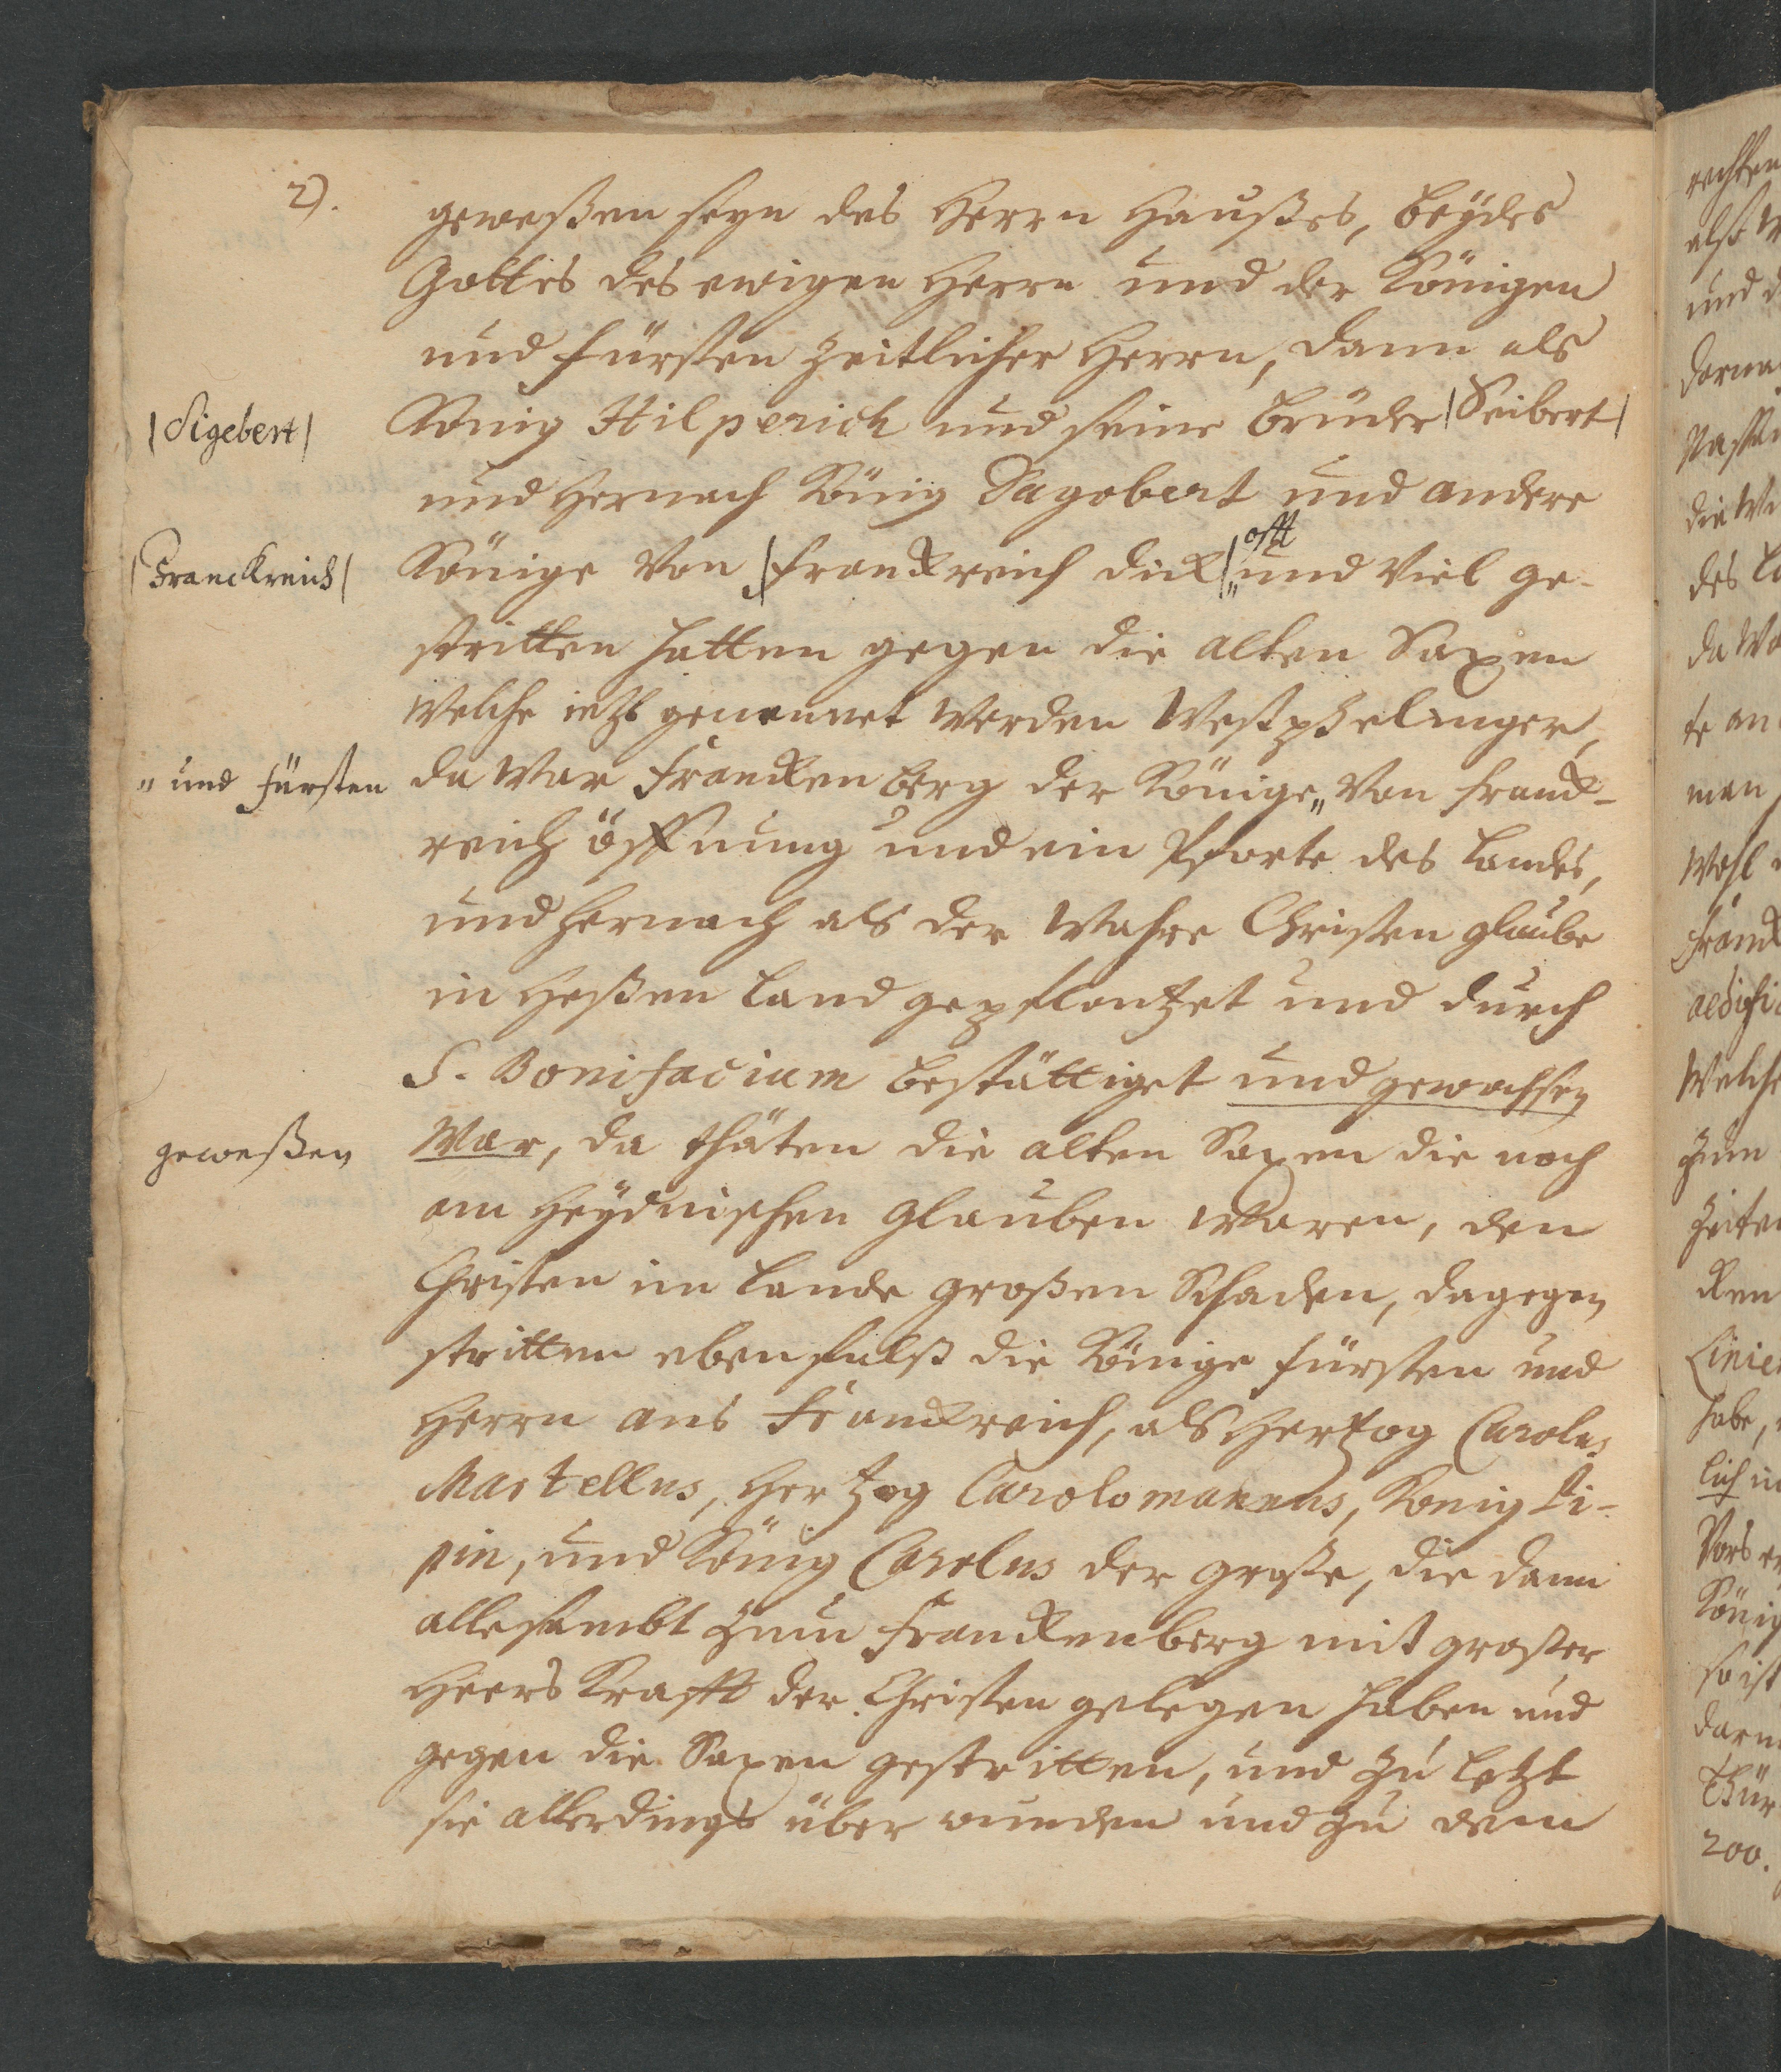 2).
geweßen seyn des Herrn Haußes, beydes
Gottes des ewigen Herrn und der Königen
und fürsten zeitlicher Herrn, dann als
|Sigebert|
König Hilperich und seine brüder |Seibert|
und hernach König Dagobert und andere
|Franckreich|
Könige von |franckreich dick|„ und viel ge-
offt
stritten hatten gegen die alten Saxen
welche ietzt genennet werden Westphelinger,
„ und fürsten
da war Franckenberg der Könige„ von franck-
reich öffnung und ein Pforte des Landes,
und hernach als der wahre Christen glaube
in Heßen land gepflantzet und durch
S. Bonifacium bestättiget und gewachsen
geweßen
war, da thäten die alten Saxen die noch
am Heydnischen glauben waren, den
Christen im Lande großen Schaden, dagegen
stritten ebenfalß die Könige fürsten und
Herrn aus Franckreich, als Hertzog Carolus
Martellus, Hertzog Carolomannus, König Pi-
pin, und König Carolus der große, die dann
allesambt zum Franckenberg mit großer
Heers Krafft der Christen gelegen haben und
gegen die Saxen gestritten, und zu letzt
sie allerdings über wunden und zu dem
rechten
also
und d
darna
die
des
da
te an
man
wohl
Franck
aedifi
welche
zum
Zeiten
Linie
habe,
lich
König
so ist
Thür
200.